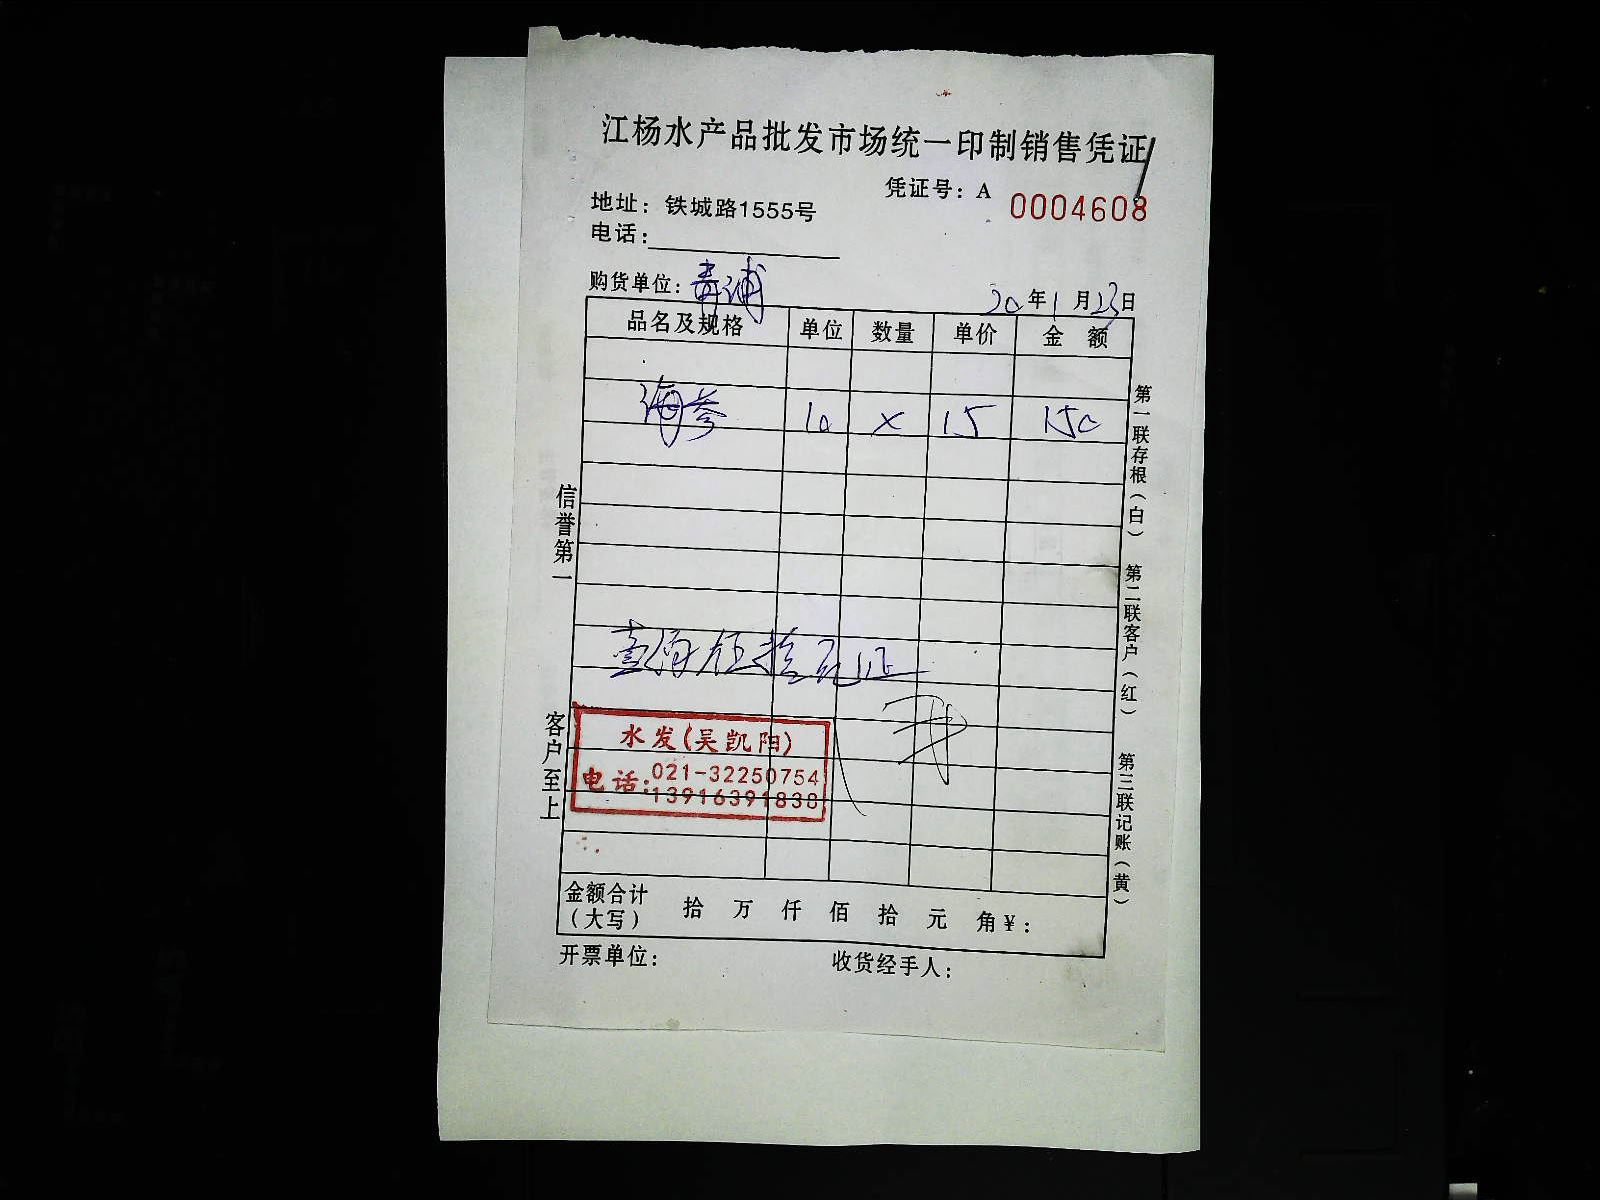 江杨水产品批发市场统一印制销售凭证
凭证号：A 0004608
地址：铁城路1555号
电话：
购货单位：青浦 20年1月23日
品名及规格 单位 数量 单价 金额
海参 10 × 15 150
壹佰伍拾元正
水发(吴凯阳)
电话：021-32250754
13916391838
金额合计（大写） 拾 万 仟 佰 拾 元 角￥：
开票单位： 收货经手人：
信誉第一
客户至上
第一联存根（白）
第二联客户（红）
第三联记账（黄）